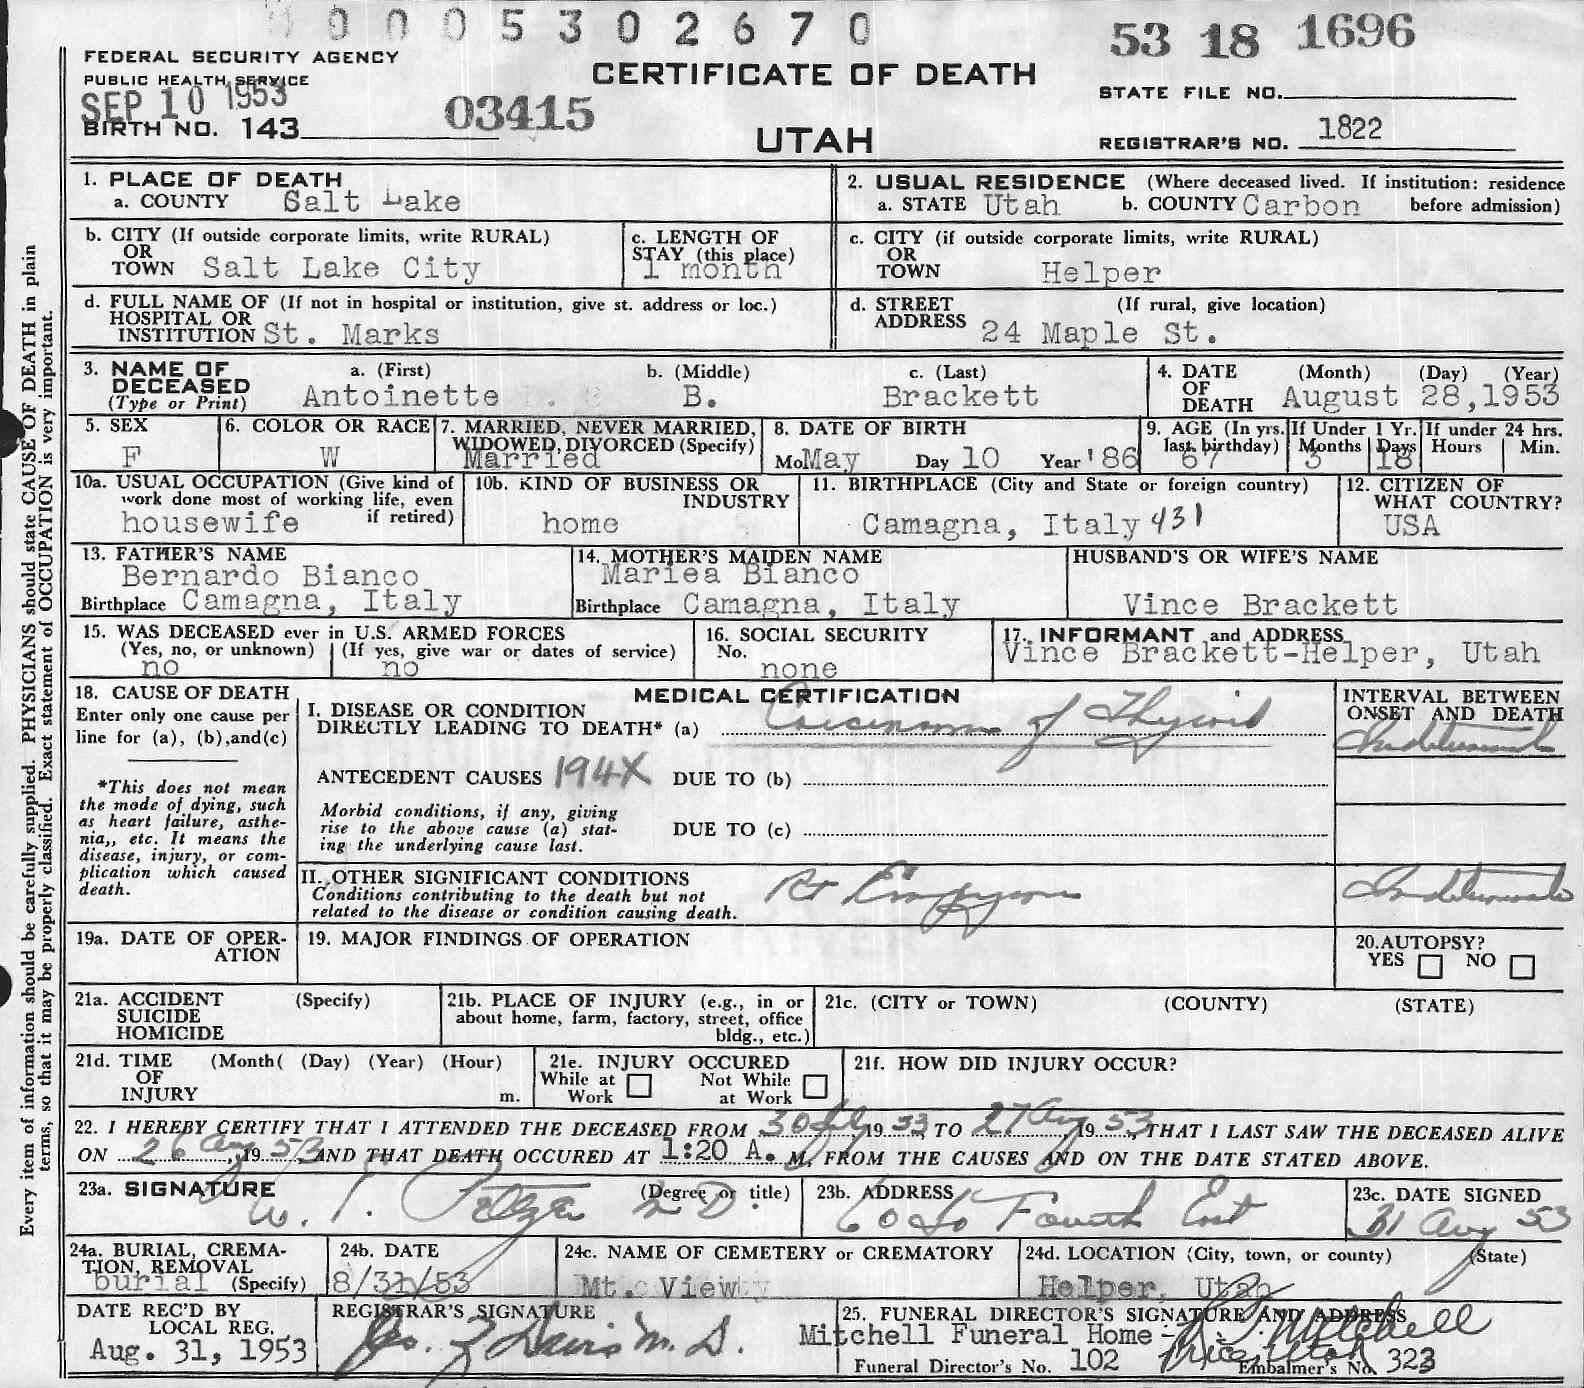 0005302670
53 18 1696
FEDERAL SECURITY AGENCY
PUBLIC HEALTH SERVICE
SEP 10 1953
CERTIFICATE OF DEATH
STATE FILE NO.
BIRTH NO. 143
03415
UTAH
REGISTRAR'S NO. 1822
Every item of information should be carefully supplied. PHYSICIANS should state CAUSE OF DEATH in plain
terms, so that it may be properly classified. Exact statement of OCCUPATION is very important.
1. PLACE OF DEATH
a. COUNTY Salt Lake
2. USUAL RESIDENCE (Where deceased lived. If institution: residence
a. STATE Utah b. COUNTY Carbon before admission)
b. CITY (If outside corporate limits, write RURAL)
OR
TOWN Salt Lake City
c. LENGTH OF
STAY (this place)
1 month
c. CITY (if outside corporate limits, write RURAL)
OR
TOWN Helper
d. FULL NAME OF (If not in hospital or institution, give st. address or loc.)
HOSPITAL OR
INSTITUTION St. Marks
d. STREET (If rural, give location)
ADDRESS 24 Maple St.
3. NAME OF a. (First) b. (Middle) c. (Last)
DECEASED
(Type or Print) Antoinette B. Brackett
4. DATE (Month) (Day) (Year)
OF
DEATH August 28,1953
5. SEX
F
6. COLOR OR RACE
W
7. MARRIED, NEVER MARRIED,
WIDOWED, DIVORCED (Specify)
Married
8. DATE OF BIRTH
Mo. May Day 10 Year '86
9. AGE (In yrs. last birthday)
67
If Under 1 Yr.
Months Days
3 18
If under 24 hrs.
Hours Min.
10a. USUAL OCCUPATION (Give kind of
work done most of working life, even
housewife if retired)
10b. KIND OF BUSINESS OR
INDUSTRY
home
11. BIRTHPLACE (City and State or foreign country)
Camagna, Italy 431
12. CITIZEN OF
WHAT COUNTRY?
USA
13. FATHER'S NAME
Bernardo Bianco
Birthplace Camagna, Italy
14. MOTHER'S MAIDEN NAME
Mariea Bianco
Birthplace Camagna, Italy
HUSBAND'S OR WIFE'S NAME
Vince Brackett
15. WAS DECEASED ever in U.S. ARMED FORCES
(Yes, no, or unknown) (If yes, give war or dates of service)
no no
16. SOCIAL SECURITY
No.
none
17. INFORMANT and ADDRESS
Vince Brackett-Helper, Utah
18. CAUSE OF DEATH
Enter only one cause per
line for (a), (b),and(c)
*This does not mean
the mode of dying, such
as heart failure, asthe-
nia,, etc. It means the
disease, injury, or com-
plication which caused
death.
MEDICAL CERTIFICATION
I. DISEASE OR CONDITION
DIRECTLY LEADING TO DEATH* (a) Carcinoma of Thyroid
ANTECEDENT CAUSES 194X DUE TO (b)
Morbid conditions, if any, giving
rise to the above cause (a) stat-
ing the underlying cause last.
DUE TO (c)
INTERVAL BETWEEN
ONSET AND DEATH
Indeterminate
II. OTHER SIGNIFICANT CONDITIONS
Conditions contributing to the death but not
related to the disease or condition causing death.
Rt Empyema
Indeterminate
19a. DATE OF OPER-
ATION
19. MAJOR FINDINGS OF OPERATION
20.AUTOPSY?
YES NO
21a. ACCIDENT (Specify)
SUICIDE
HOMICIDE
21b. PLACE OF INJURY (e.g., in or
about home, farm, factory, street, office
bldg., etc.)
21c. (CITY or TOWN) (COUNTY) (STATE)
21d. TIME (Month( (Day) (Year) (Hour)
OF
INJURY m.
21e. INJURY OCCURED
While at Work Not While at Work
21f. HOW DID INJURY OCCUR?
22. I HEREBY CERTIFY THAT I ATTENDED THE DECEASED FROM 30 July 1953 TO 27 Aug 1953, THAT I LAST SAW THE DECEASED ALIVE
ON 26 Aug, 1953 AND THAT DEATH OCCURED AT 1:20 A. M. FROM THE CAUSES AND ON THE DATE STATED ABOVE.
23a. SIGNATURE (Degree or title)
M D.
23b. ADDRESS
60 So Fourth East
23c. DATE SIGNED
31 Aug 53
24a. BURIAL, CREMA-
TION, REMOVAL
burial (Specify)
24b. DATE
8/31/53
24c. NAME OF CEMETERY or CREMATORY
Mt. View
24d. LOCATION (City, town, or county) (State)
Helper, Utah
DATE REC'D BY
LOCAL REG.
Aug. 31, 1953
REGISTRAR'S SIGNATURE
Davis M. D.
25. FUNERAL DIRECTOR'S SIGNATURE AND ADDRESS
Mitchell Funeral Home - Mitchell
Price, Utah
Funeral Director's No. 102 Embalmer's No. 323